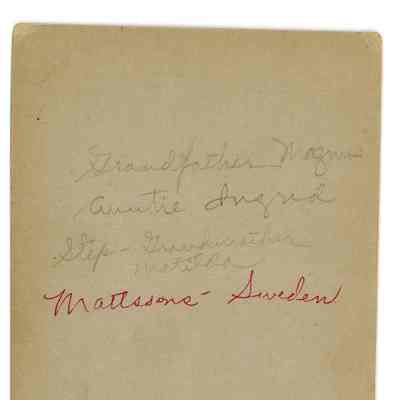 Grandfather Magnus
Auntie Ingrid
Step-Grandmother
Matilda
Mattssons - Sweden